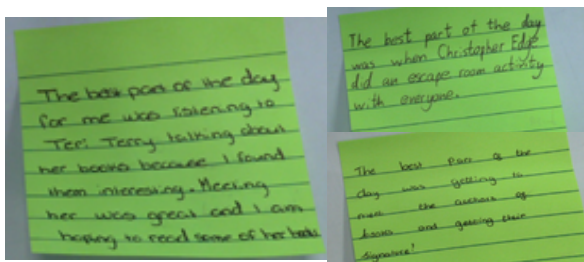 The best part of the day
for me was listening to
Teri Terry talking about
her books because I found
them interesting. Meeting
her was great and I am
hoping to read some of her books
The best part of the day
was when Christopher Edge
did an escape room activity
with everyone.
The best Part of the
day was getting to
meet the authors of
books and getting their
signature!